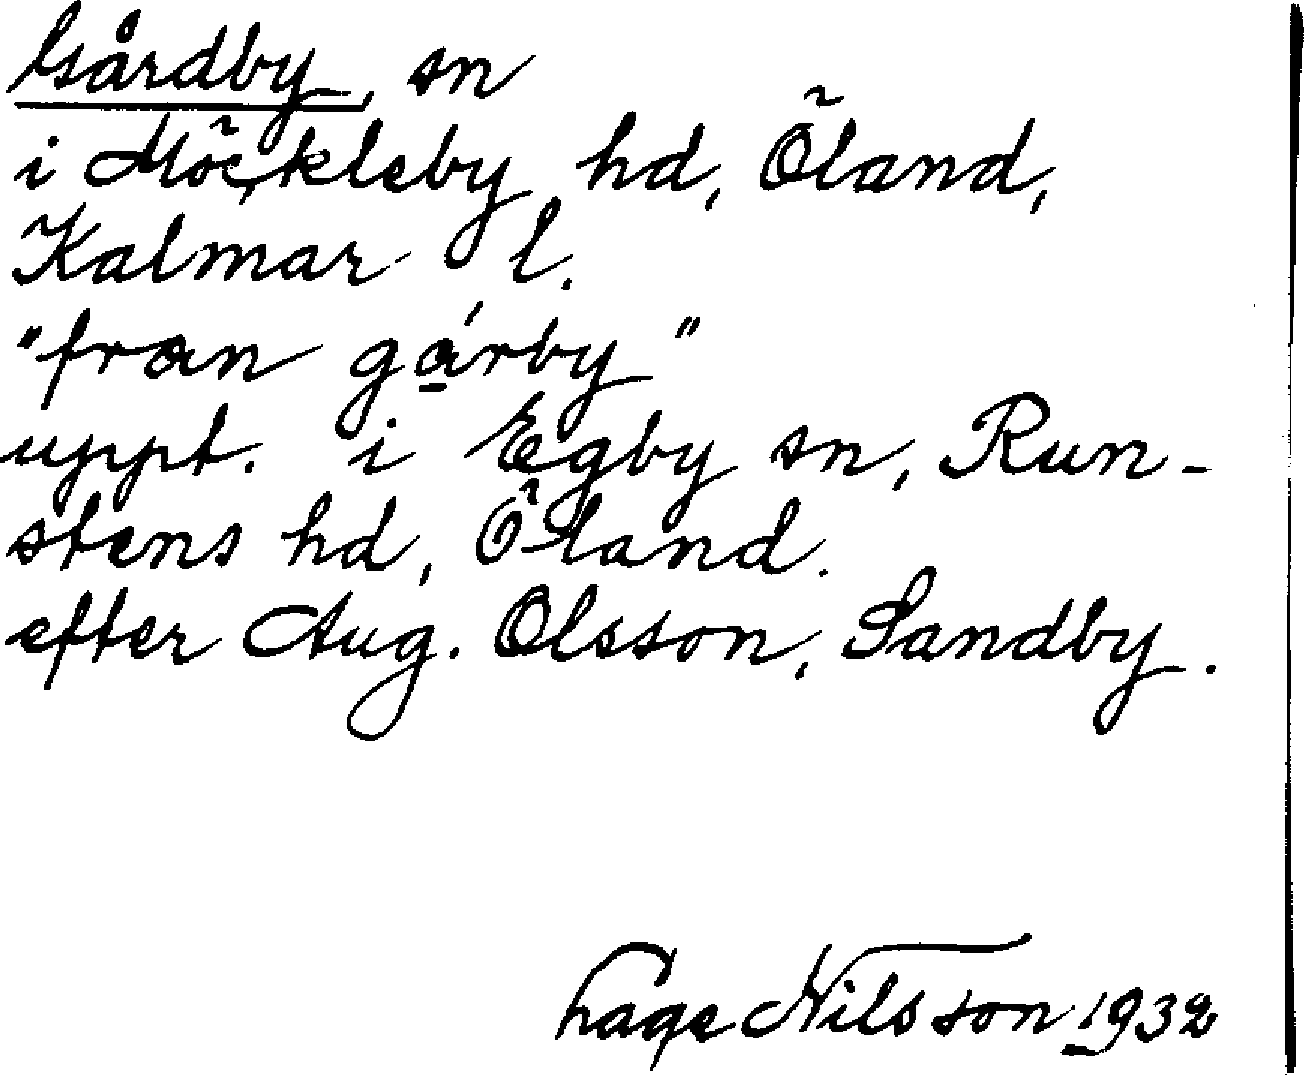 Gårdby, sn
i Möckleby hd, Öland,
Kalmar l.
"fran gá̱rby"
uppt. i Egby sn, Run-
stens hd, Öland.
efter Aug. Olsson, Sandby.
Hage Nilsson 1932